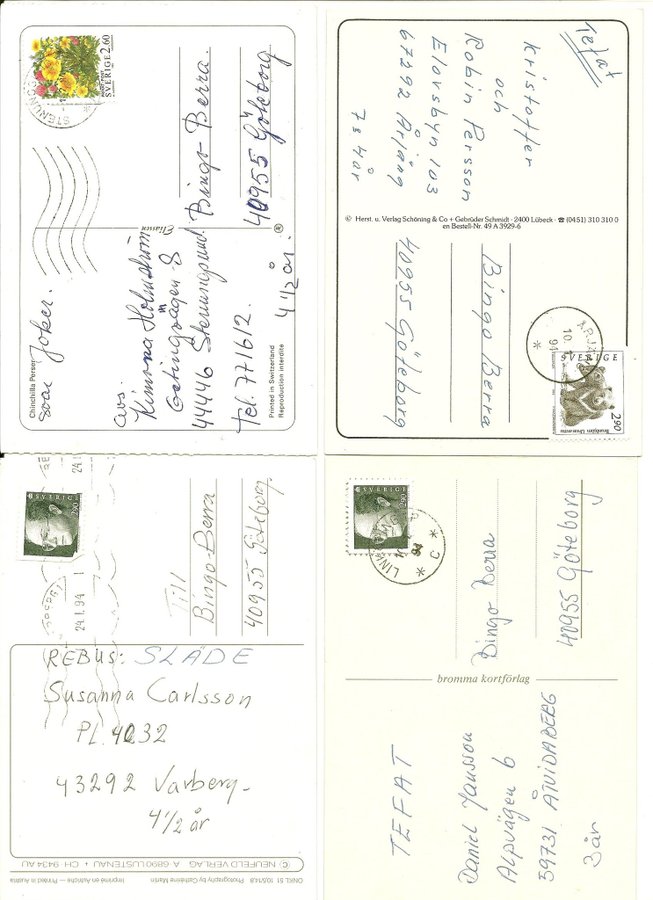 SVERIGE 2.60
Bingo-Berra.
40955 Göteborg
Eliasson
Chinchilla Perser
Joker.
avs.
Holmström
Getingvägen 8
44446 Stenungsund.
Tel. 771612.
4 1/2 år.
Printed in Switzerland
Reproduction interdite
Tefat
Kristoffer
och
Robin Persson
Elovsbyn 103
67292 Årjäng
7 & 4 år
© Herst. u. Verlag Schöning & Co + Gebrüder Schmidt · 2400 Lübeck · ☎ (0451) 310 310 0
en Bestell-Nr. 49 A 3929-6
Bingo Berra
40955 Göteborg
SVERIGE
2.90
SVERIGE
290
24.1.94
Till
Bingo-Berra
40955 Göteborg.
REBUS: SLÄDE
Susanna Carlsson
PL. 4032
43292 Varberg-
4 1/2 år
© NEUFELD VERLAG A 6890 LUSTENAU + CH 9434 AU
Photography by Cathérine Martin
Imprimé en Autriche — Printed in Austria
SVERIGE
290
Bingo Berra
40955 Göteborg
bromma kortförlag
TEFAT
Daniel Jansson
Alpvägen 6
59731 ÅTVIDABERG
3 år